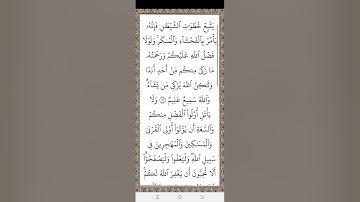 يَتَّبِعْ خُطُوَٰتِ ٱلشَّيْطَٰنِ فَإِنَّهُۥ
يَأْمُرُ بِٱلْفَحْشَآءِ وَٱلْمُنكَرِ ۚ وَلَوْلَا
فَضْلُ ٱللَّهِ عَلَيْكُمْ وَرَحْمَتُهُۥ
مَا زَكَىٰ مِنكُم مِّنْ أَحَدٍ أَبَدًا
وَلَٰكِنَّ ٱللَّهَ يُزَكِّى مَن يَشَآءُ ۗ
وَٱللَّهُ سَمِيعٌ عَلِيمٌ ۝ وَلَا
يَأْتَلِ أُو۟لُوا۟ ٱلْفَضْلِ مِنكُمْ
وَٱلسَّعَةِ أَن يُؤْتُوٓا۟ أُو۟لِى ٱلْقُرْبَىٰ
وَٱلْمَسَٰكِينَ وَٱلْمُهَٰجِرِينَ فِى
سَبِيلِ ٱللَّهِ ۖ وَلْيَعْفُوا۟ وَلْيَصْفَحُوٓا۟ ۗ
أَلَا تُحِبُّونَ أَن يَغْفِرَ ٱللَّهُ لَكُمْ ۗ